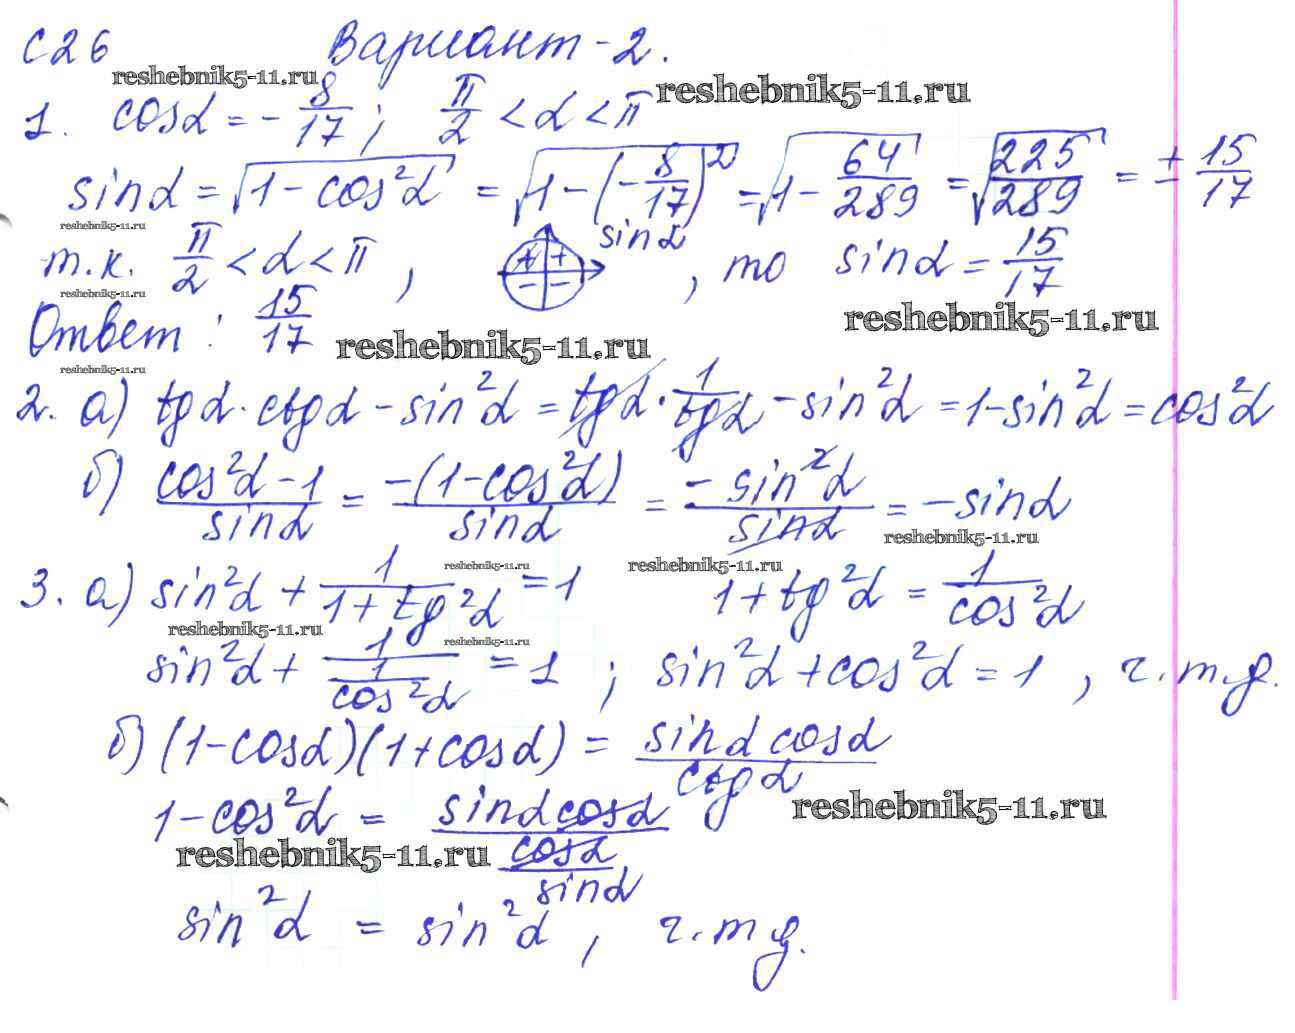 С26 Вариант-2.
reshebnik5-11.ru
reshebnik5-11.ru
1. cosα = -8/17; π/2 < α < π
sinα = √(1 - cos²α) = √(1 - (-8/17)²) = √(1 - 64/289) = √(225/289) = ± 15/17
reshebnik5-11.ru
т.к. π/2 < α < π, + + - - sinα, то sinα = 15/17
reshebnik5-11.ru
Ответ: 15/17
reshebnik5-11.ru
reshebnik5-11.ru
reshebnik5-11.ru
2. а) tgα · ctgα - sin²α = tgα · 1/tgα - sin²α = 1 - sin²α = cos²α
б) (cos²α - 1)/sinα = -(1 - cos²α)/sinα = -sin²α/sinα = -sinα
reshebnik5-11.ru
reshebnik5-11.ru
reshebnik5-11.ru
3. а) sin²α + 1/(1 + tg²α) = 1 1 + tg²α = 1/cos²α
reshebnik5-11.ru
reshebnik5-11.ru
sin²α + 1/(1/cos²α) = 1; sin²α + cos²α = 1, ч.т.д.
б) (1 - cosα)(1 + cosα) = sinα cosα/ctgα
reshebnik5-11.ru
1 - cos²α = sinα cosα/(cosα/sinα)
reshebnik5-11.ru
sin²α = sin²α, ч.т.д.